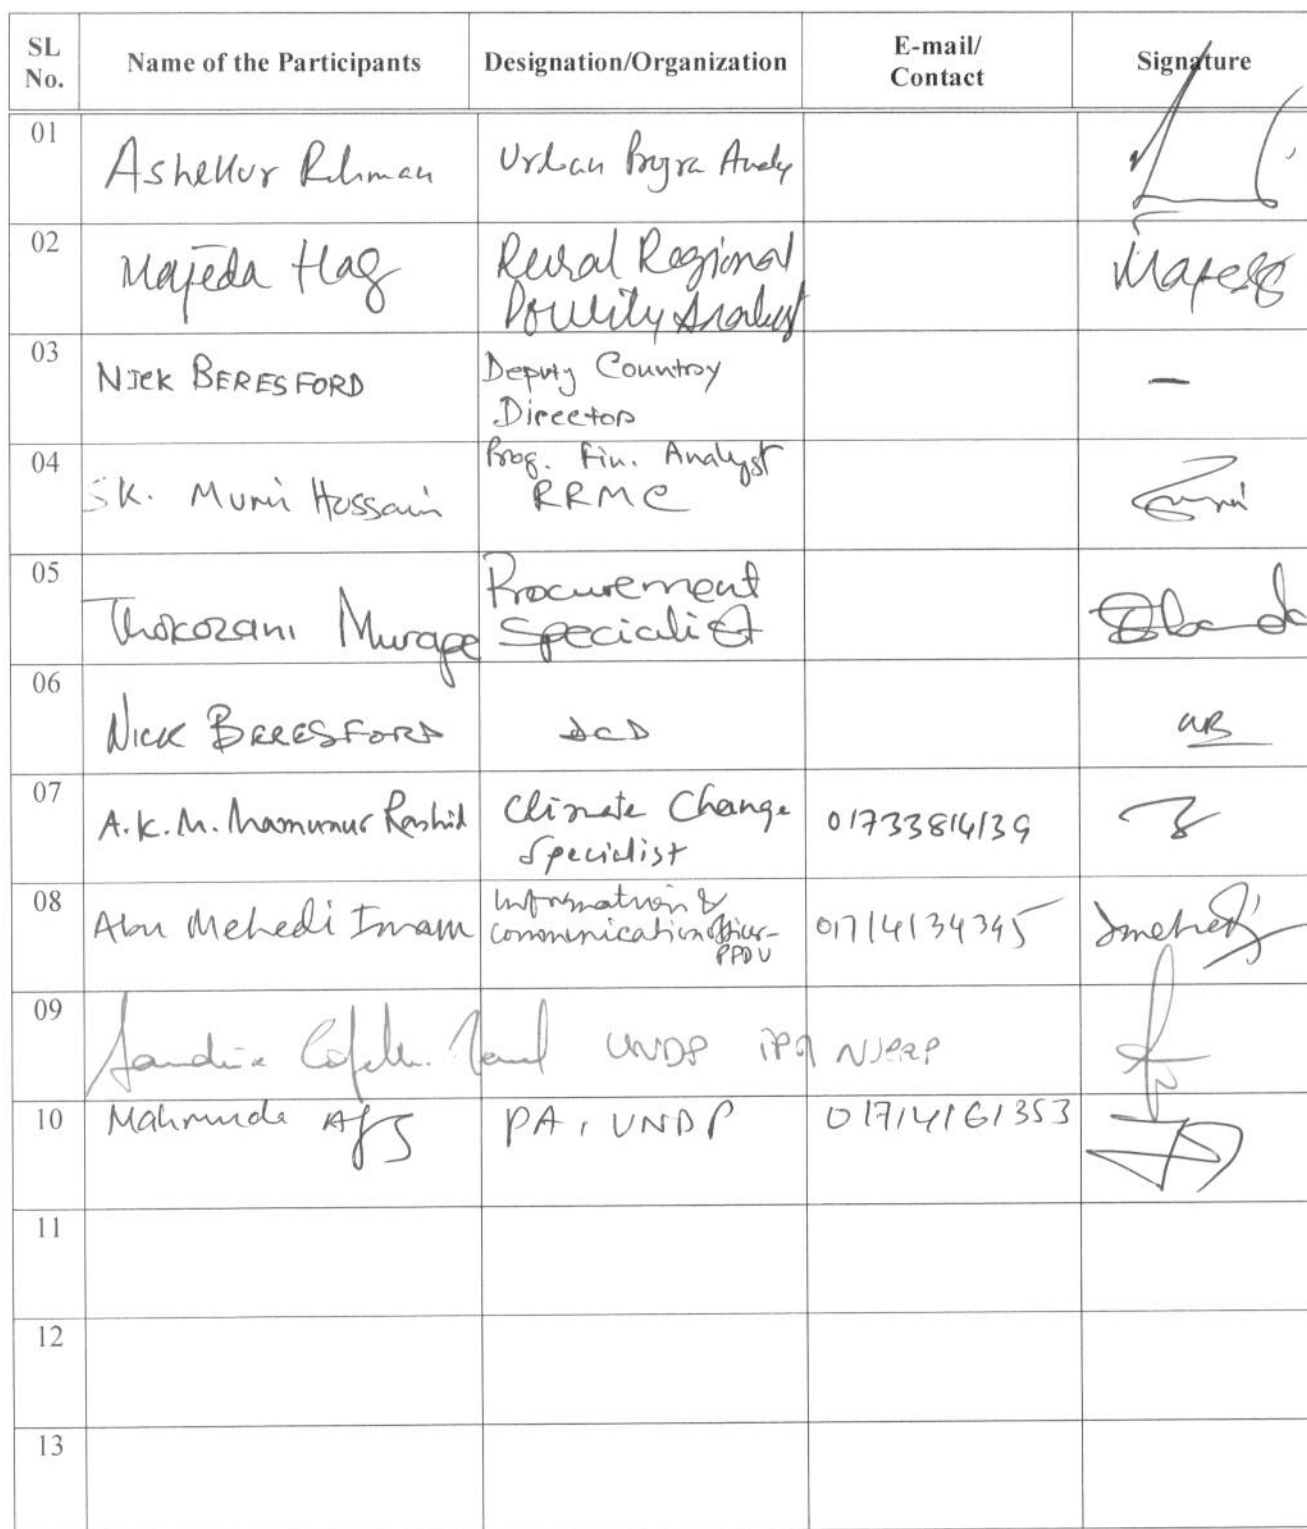 SL No. Name of the Participants Designation/Organization E-mail/ Contact Signature
01 Ashekur Rahman Urban
02 Majeda Haq Rural Regional
Analyst
03 NICK BERESFORD Deputy Country
Director –
04 SK. Munir Hossain Prog. Fin. Analyst
RRMC
05 Thokozani Murape Procurement
Specialist
06 NICK BERESFORD DCD NB
07 A.K.M. Mamunur Rashid Climate Change
Specialist 01733814139
08 Abu Mehedi Imam Information &
communication officer-
PPDU 01714134345
09 UNDP
10 Mahmuda PA, UNDP 01714161353
11
12
13